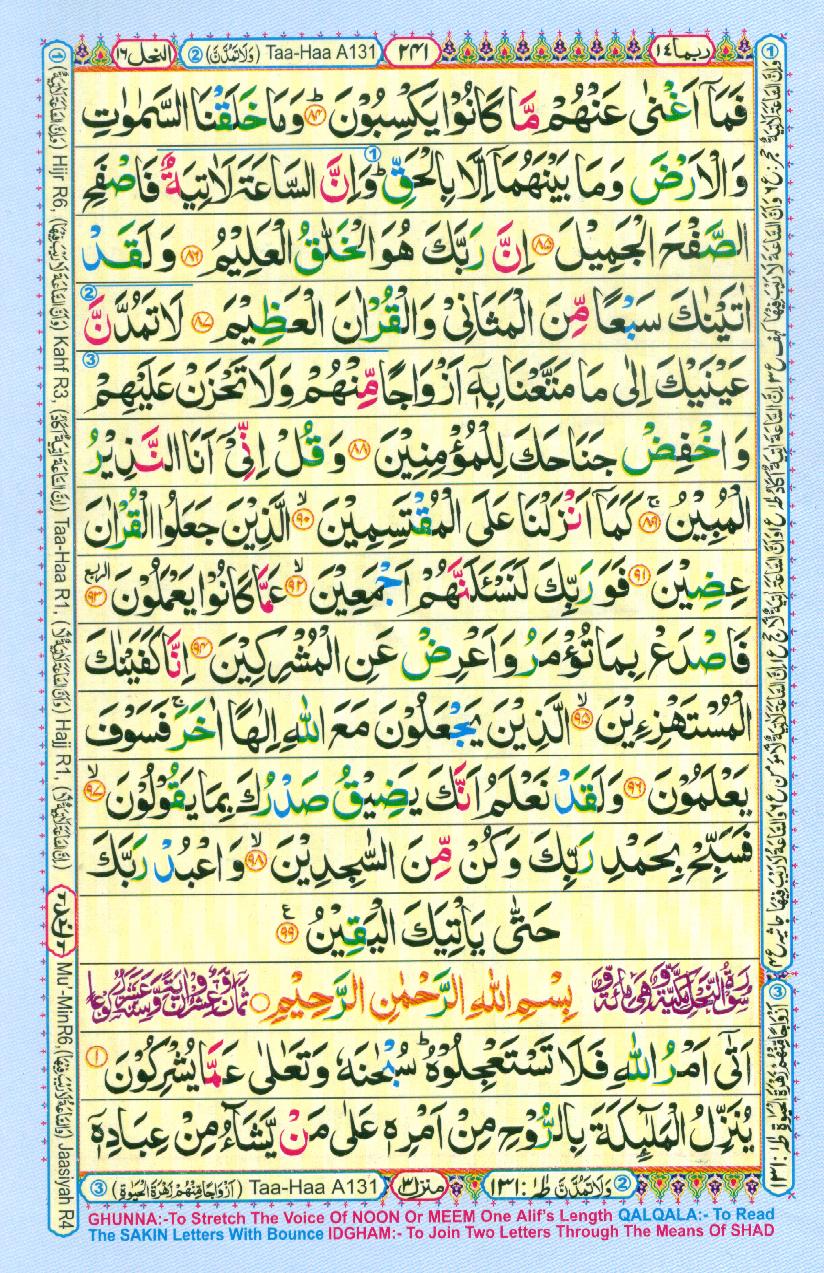 ربما ١٤
٢٤١
② (وَلَا تَمُدَّنَّ) Taa-Haa A131
النحل ١٦
فَمَآ اَغْنٰى عَنْهُمْ مَّا كَانُوْا يَكْسِبُوْنَ ؕ۸۴ وَمَا خَلَقْنَا السَّمٰوٰتِ
وَالْاَرْضَ وَمَا بَيْنَهُمَآ اِلَّا بِالْحَقِّ ؕ وَاِنَّ السَّاعَةَ لَاٰتِيَةٌ فَاصْفَحِ
الصَّفْحَ الْجَمِيْلَ ۸۵ اِنَّ رَبَّكَ هُوَ الْخَلّٰقُ الْعَلِيْمُ ۸۶ وَلَقَدْ
اٰتَيْنٰكَ سَبْعًا مِّنَ الْمَثَانِيْ وَالْقُرْاٰنَ الْعَظِيْمَ ۸۷ لَا تَمُدَّنَّ
عَيْنَيْكَ اِلٰى مَا مَتَّعْنَا بِهٖٓ اَزْوَاجًا مِّنْهُمْ وَلَا تَحْزَنْ عَلَيْهِمْ
وَاخْفِضْ جَنَاحَكَ لِلْمُؤْمِنِيْنَ ۸۸ وَقُلْ اِنِّيْٓ اَنَا النَّذِيْرُ
الْمُبِيْنُ ۚ۸۹ كَمَآ اَنْزَلْنَا عَلَى الْمُقْتَسِمِيْنَ ۙ۹۰ الَّذِيْنَ جَعَلُوا الْقُرْاٰنَ
عِضِيْنَ ۹۱ فَوَرَبِّكَ لَنَسْـَٔلَنَّهُمْ اَجْمَعِيْنَ ۙ۹۲ عَمَّا كَانُوْا يَعْمَلُوْنَ ۹۳ الربع
فَاصْدَعْ بِمَا تُؤْمَرُ وَاَعْرِضْ عَنِ الْمُشْرِكِيْنَ ۹۴ اِنَّا كَفَيْنٰكَ
الْمُسْتَهْزِءِيْنَ ۙ۹۵ الَّذِيْنَ يَجْعَلُوْنَ مَعَ اللّٰهِ اِلٰهًا اٰخَرَ ۚ فَسَوْفَ
يَعْلَمُوْنَ ۹۶ وَلَقَدْ نَعْلَمُ اَنَّكَ يَضِيْقُ صَدْرُكَ بِمَا يَقُوْلُوْنَ ۙ۹۷
فَسَبِّحْ بِحَمْدِ رَبِّكَ وَكُنْ مِّنَ السّٰجِدِيْنَ ۙ۹۸ وَاعْبُدْ رَبَّكَ
حَتّٰى يَاْتِيَكَ الْيَقِيْنُ ۹۹ ع
بِسْمِ اللّٰهِ الرَّحْمٰنِ الرَّحِيْمِ
اَتٰٓى اَمْرُ اللّٰهِ فَلَا تَسْتَعْجِلُوْهُ ؕ سُبْحٰنَهٗ وَتَعٰلٰى عَمَّا يُشْرِكُوْنَ ۱
يُنَزِّلُ الْمَلٰٓئِكَةَ بِالرُّوْحِ مِنْ اَمْرِهٖ عَلٰى مَنْ يَّشَآءُ مِنْ عِبَادِهٖٓ
② وَلَا تَمُدَّنَّ طٰهٰ : ١٣١
منزل ٣
③ (اَزْوَاجًا مِّنْهُمْ زَهْرَةَ الْحَيٰوةِ) Taa-Haa A131
GHUNNA:-To Stretch The Voice Of NOON Or MEEM One Alif's Length QALQALA:- To Read
The SAKIN Letters With Bounce IDGHAM:- To Join Two Letters Through The Means Of SHAD